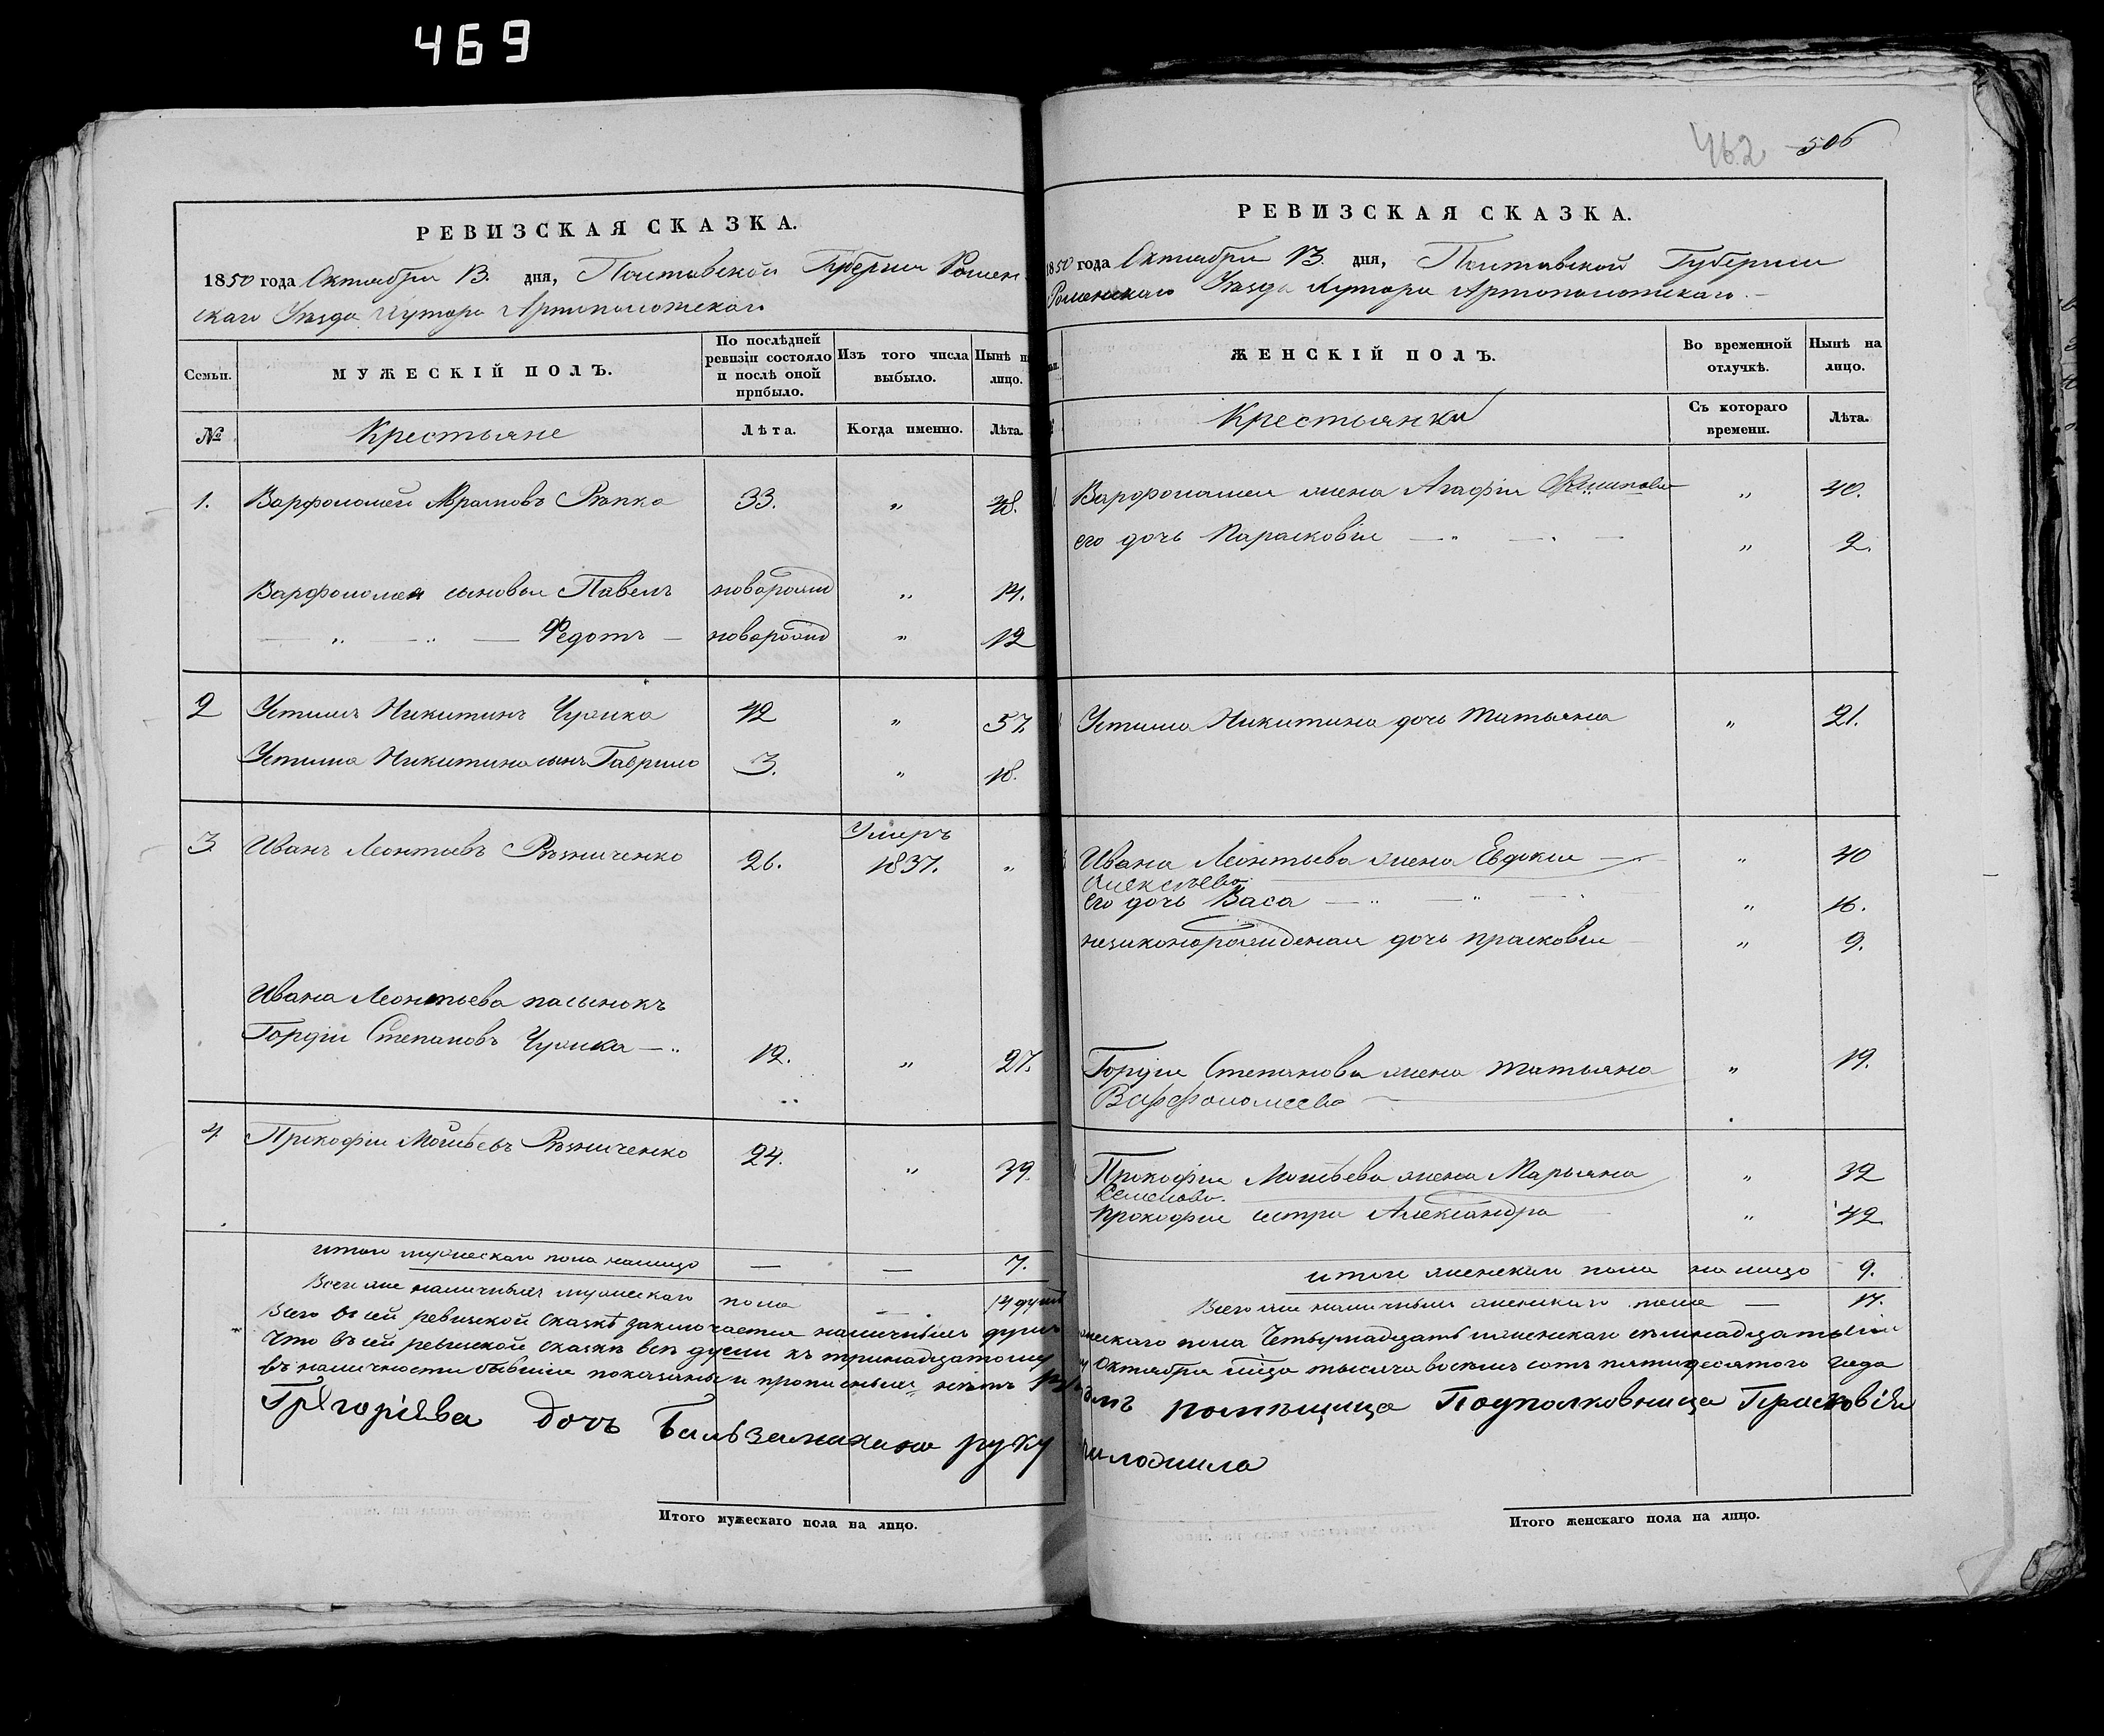 469
462 506
РЕВИЗСКАЯ СКАЗКА.
1850 года Октября 13. дня, Полтавской Губернии Ромен-
скаго Уѣзда Хутора Артополотскаго
Семьи.
МУЖЕСКІЙ ПОЛЪ.
По послѣдней ревизіи состояло и послѣ оной прибыло.
Изъ того числа выбыло.
Нынѣ на лицо.
№
Крестьяне
Лѣта.
Когда именно.
Лѣта.
1. Варфоломей Аврамовъ Рѣпка 33. „ 48.
Варфоломея сыновья Павелъ новорожд „ 14.
— „ — „ — Федотъ — новорожд „ 12
2 Устимъ Никитинъ Чужка 42 „ 57.
Устима Никитина сынъ Гаврило 3. „ 18.
Умеръ
3 Иванъ Леонтьевъ Рѣзниченко 26. 1837. „
Ивана Леонтьева пасынокъ
Гордій Степановъ Чужка — „ 12. „ 27.
4 Прокофій Моисѣевъ Рѣзниченко 24. „ 39.
итого мужескаго пола налицо — — 7.
Всего же наличныхъ мужескаго пола — 14 душъ
Всего въ сей ревизской сказкѣ заключается наличныхъ душъ
Что въ сей ревизской сказкѣ всѣ души къ тринадцатому
въ наличности бывшія показаны и прописныхъ нѣтъ
Грѣгоріѣва дочъ Бальзаманова руку
Итого мужескаго пола на лицо.
РЕВИЗСКАЯ СКАЗКА.
1850 года Октября 13. дня, Полтавской Губерніи
Роменскаго Уѣзда Хутора Артополотскаго. —
ЖЕНСКІЙ ПОЛЪ.
Во временной отлучкѣ.
Нынѣ на лицо.
Крестьянки
Съ котораго времени.
Лѣта.
Варфоломея жена Агафія „ 40.
его дочь Парасковія — „ — „ — „ 2.
Устима Никитина дочь Татьяна „ 21.
Ивана Леонтьева жена Евдокія — „ 40
Алексѣева
его дочь Васа — „ — „ — „ 16.
незаконорожденая дочь прасковія „ 9.
Гордія Степанова жена Татьяна „ 19.
Варфоломеева
Прокофія Моисѣева жена Марьяна „ 32
Семенова.
Прокофія сестра Александра „ 42
итого женскаго пола на лицо 9.
Всего же наличныхъ женскаго пола — 17.
мужескаго пола Четырнадцать и женскаго семнадцать
Октября м͠ца тысяча восемь сотъ пятидесятого года
помѣщица Подполковница Прасковія
приложила
Итого женскаго пола на лицо.